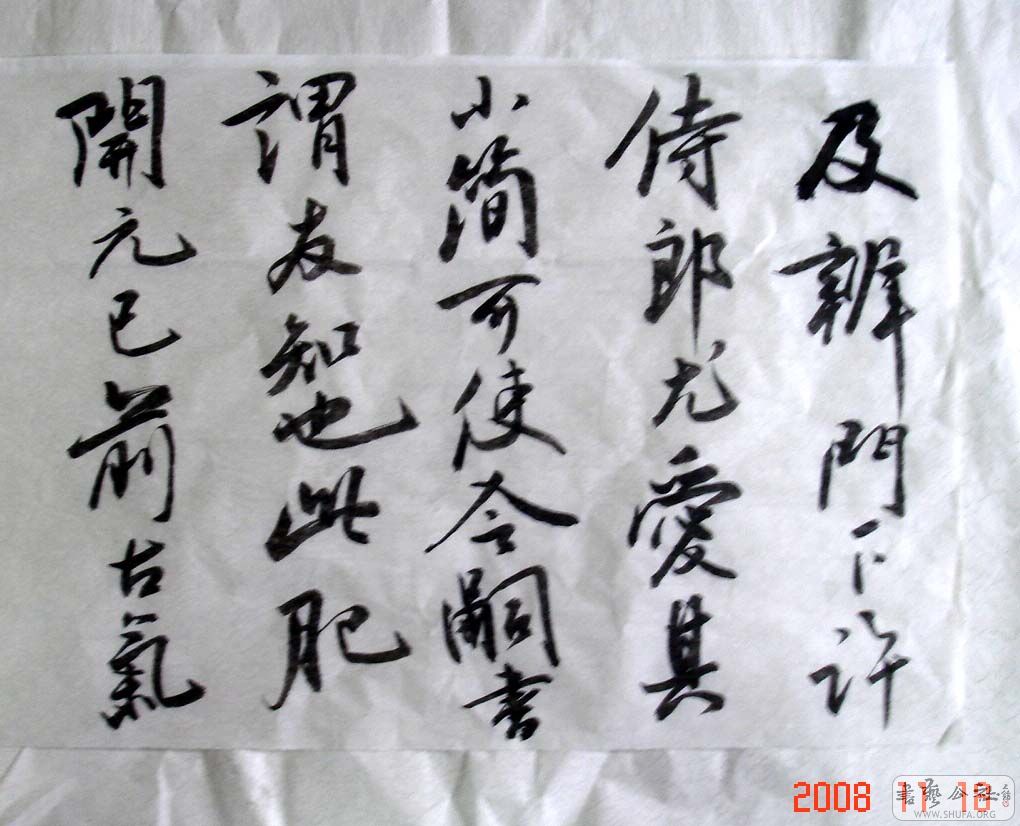 及辨門下許
侍郎尤愛其
小簡可使令嗣書
謂友知也此肥
開元已前古氣
2008 11 18
書藝公社
WWW.SHUFA.ORG